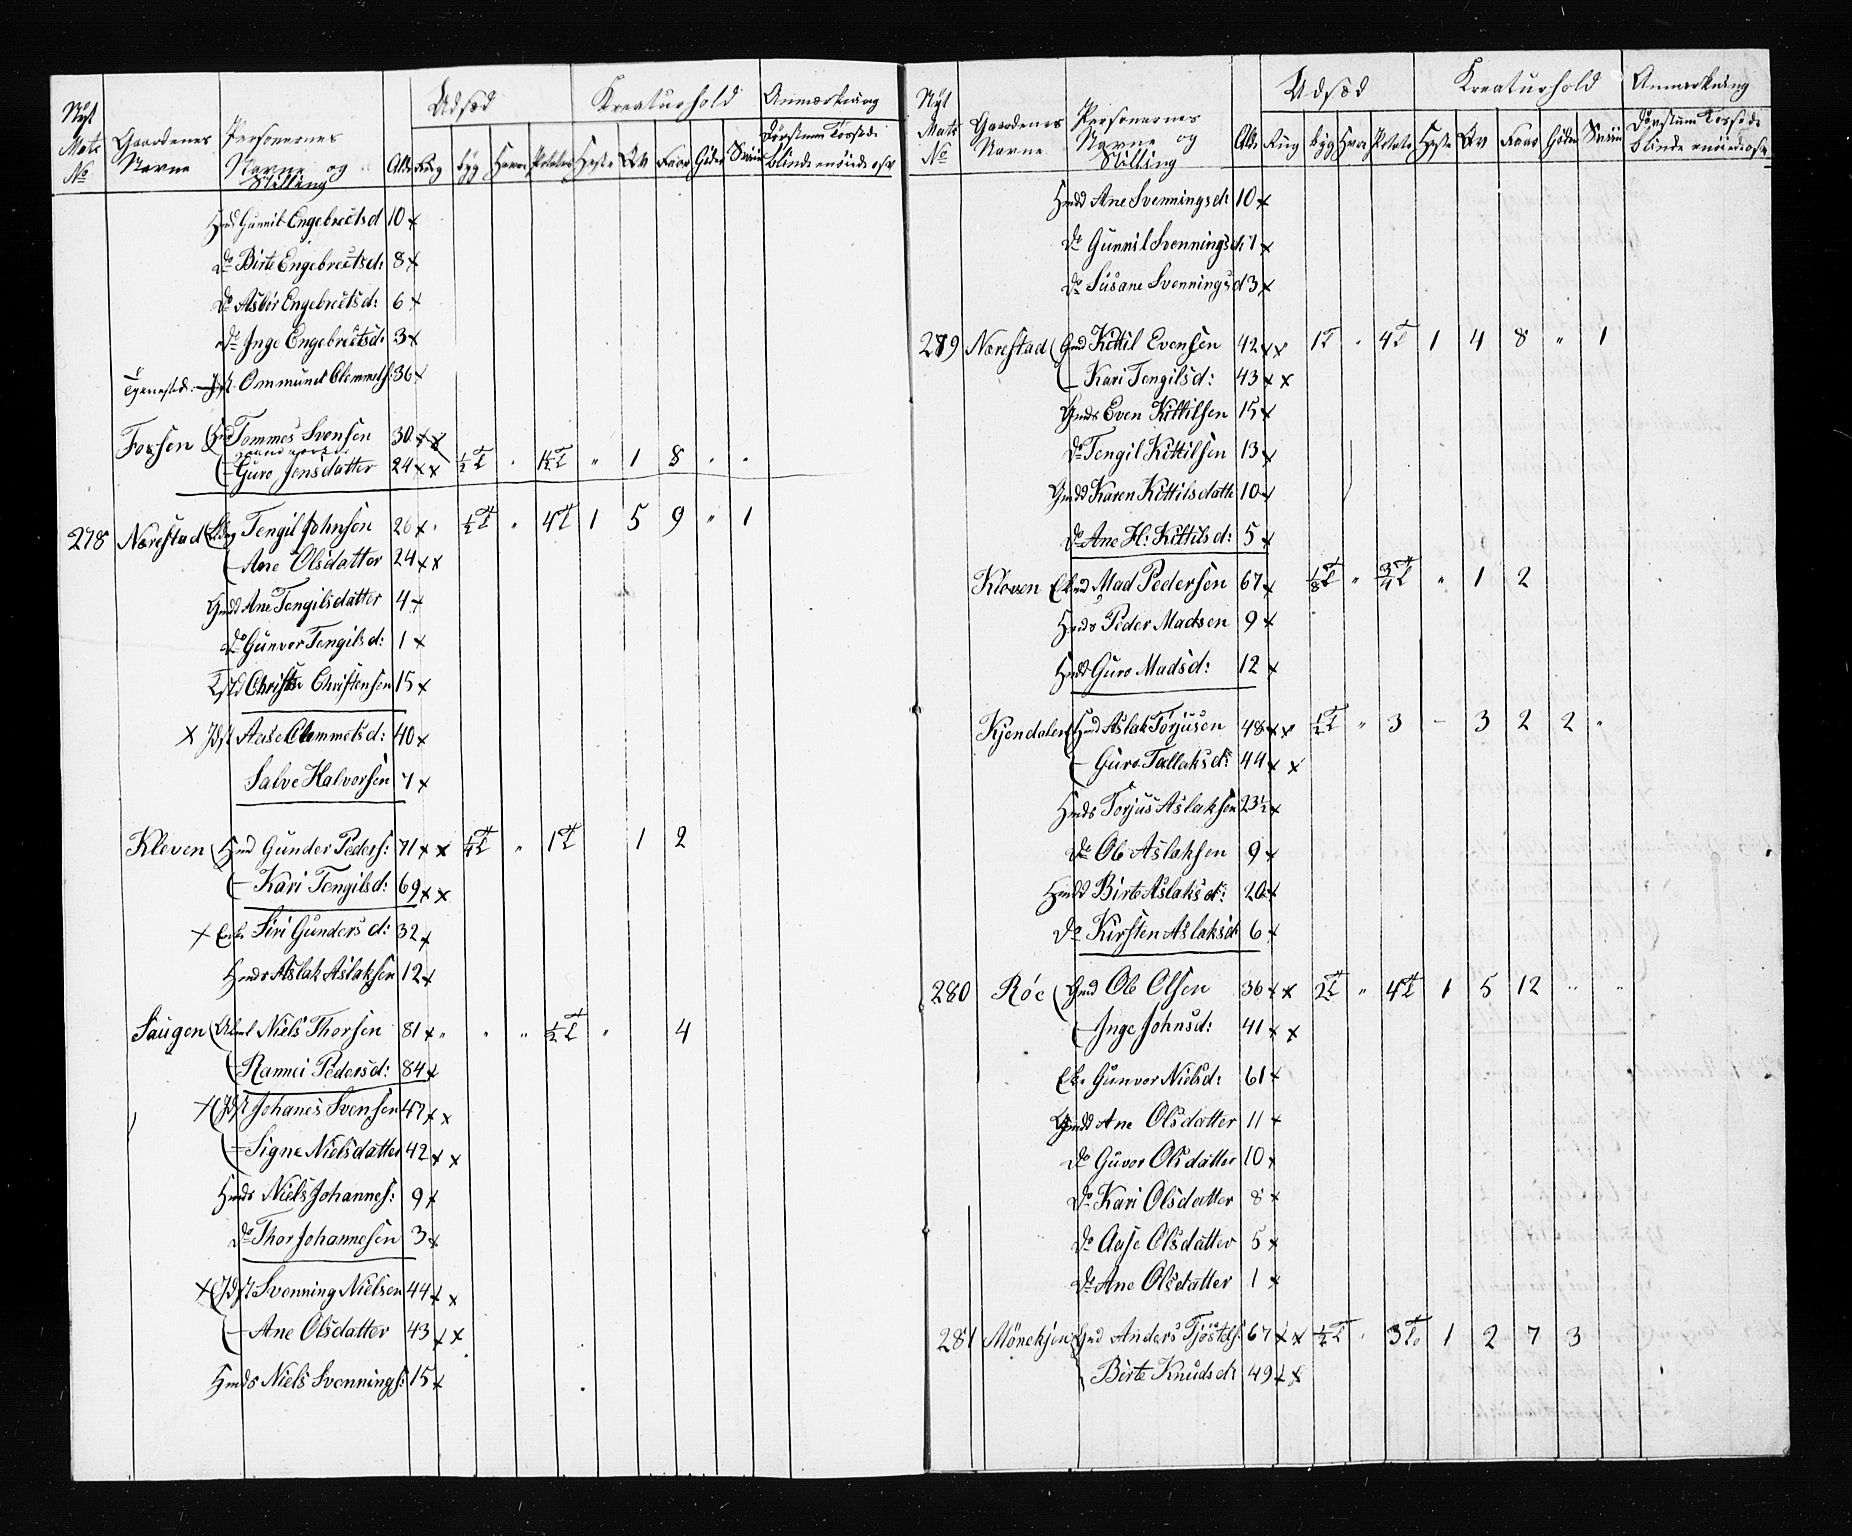 Nyt Matr No | Gaardenes Navne | Personernes Navne og Stilling | Alder | Udsæd: Rug Byg Havre Potetes | Kreaturhold: Heste Qv Faar Gider Sviin | Anmærkning
Hmd Gunnil Engebrectsd 10 x
Do Birte Engebrectsd: 8 x
Do Asber Engebrectsd: 6 x
Do Inge Engebrectsd: 3 x
Tjenestd: Ommund Clemmets: 36 x
Fossen Tommes Svensen 30 x x
Guro Jensdatter 24 x x ½ T " 1½ T " 1 8 " "
278 Nærestad Tengil Johnsen 26 x " ½ T " 4 T 1 5 9 " 1
Ane Olsdatter 24 x x
Gmdd Ane Tengilsdatter 4 x
Do Gunvor Tengilsd: 1 x
Christen Christensen 15 x
x Idst Aase Clemmetsd: 40 x
Salve Halvorsen 7 x
Kleven Hmd Gunder Peders: 71 x x ¼ T " 1 T 1 2
Kari Tengilsd: 69 x x
x Enke Siri Gundersd: 32 x
Hmds Aslak Aslaksen 12 x
Saugen Niels Thorsen 81 x " " " ½ T " 4
Rannei Pedersd: 84 x
x Idst Johanes Svensen 47 x x
Signe Nielsdatter 42 x x
Hmds Niels Johannes: 9 x
Do Thor Johannesen 3 x
x Idst Svenning Nielsen 44 x x
Ane Olsdatter 43 x x
Hmds Niels Svennings: 15 x
Nyt Matr No | Gaardenes Navne | Personernes Navne og Stilling | Alder | Udsæd: Rug Byg Havre Potete | Kreaturhold: Heste Qv Faar Gider Sviin | Anmærkning
Hmdd Ane Svenningsd: 10 x
Do Gunnil Svenningsd: 7 x
Do Susane Svenningsd 3 x
279 Nærestad Gmd Kittil Evensen 42 x x 1 T " 4 T 1 4 8 " 1
Kari Tengilsd: 43 x x
Gmds Even Kittilsen 15 x
Do Tengil Kittilsen 13 x
Gmdd Karen Kittilsdatt: 10 x
Do Ane H: Kittilsd: 5 x
Kleven Ekmd Mad Pedersen 67 x ⅛ T " ¾ T " 1 2
Hmds Peder Madsen 9 x
Hmdd Guro Madsd: 12 x
Kjendalen Hmd Aslak Torjusen 48 x x ½ T " 3 – 3 2 2 "
Guro Tallaksd: 44 x x
Hmds Torjus Aslaksen 23½ x
Do Ole Aslaksen 9 x
Hmdd Birte Aslaksd: 20 x
Do Kirsten Aslaksd: 6 x
280 Røe Gmd Ole Olsen 36 x x 2 T " 4 T 1 5 12 " "
Inge Johnsd: 41 x x
Eke Gunvor Nielsd: 61 x
Gmdd Ane Olsdatter 11 x
Do Guvor Olsdatter 10 x
Do Kari Olsdatter 8 x
Do Aase Olsdatter 5 x
Do Ane Olsdatter 1 x
281 Mønekjen Gmd Anders Tjøstels: 67 x x ½ T " 3 T 1 2 7 3
Birte Knudsd: 49 x x